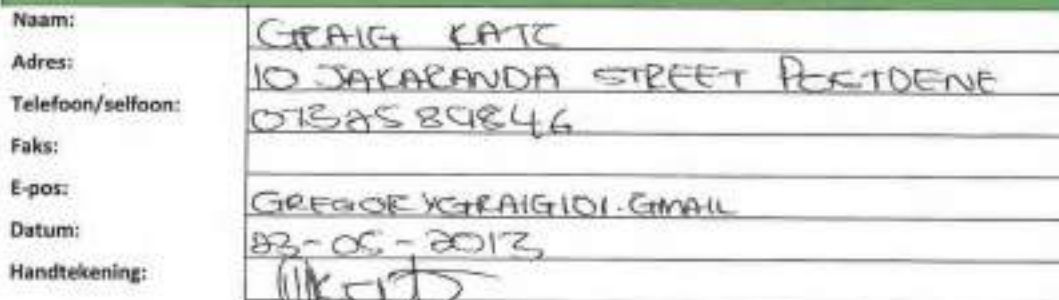 Naam: GRAIG KATZ
Adres: 10 JAKARANDA STREET PORTDENE
Telefoon/selfoon:
Faks:
E-pos: GREGORYGRAIG101.GMAIL
Datum: 23-05-2013
Handtekening: